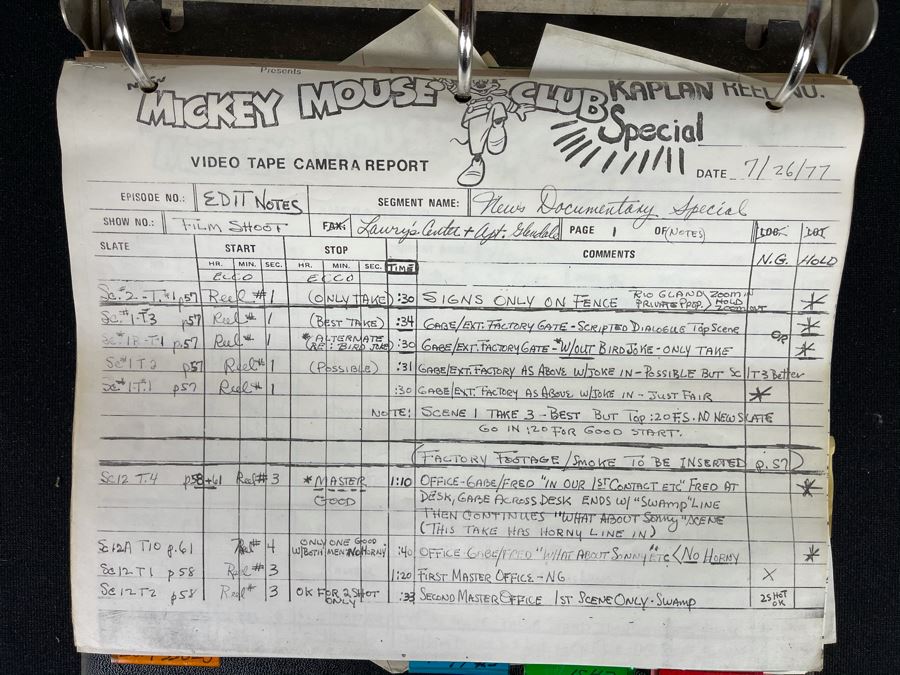 Presents
NEW MICKEY MOUSE CLUB KAPLAN REEL NO.
Special
VIDEO TAPE CAMERA REPORT
DATE 7/26/77
EPISODE NO.: EDIT NOTES SEGMENT NAME: News Documentary Special
SHOW NO.: FILM SHOOT FAX: Lawry's Center + Apt. Glendale PAGE 1 OF (NOTES)
SLATE START STOP COMMENTS N.G. HOLD
HR. MIN. SEC. HR. MIN. SEC. TIME
ECCO ECCO
Sc.#2-T.#1 p57 Reel #1 (ONLY TAKE) :30 SIGNS ONLY ON FENCE RIO GLAND PRIVATE PROP) ZOOM IN HOLD ZOOM OUT *
Sc.#1-T3 p57 Reel #1 (BEST TAKE) :34 GABE/EXT. FACTORY GATE - SCRIPTED DIALOGUE TOP SCENE *
OR
Sc#1B-T1 p57 Reel #1 * ALTERNATE (RE: BIRD JOKE) :30 GABE/EXT. FACTORY GATE - *W/OUT BIRD JOKE - ONLY TAKE *
Sc#1 T2 p57 Reel #1 (POSSIBLE) :31 GABE/EXT. FACTORY AS ABOVE W/JOKE IN - POSSIBLE BUT SC 1 T3 Better
Sc#1 T.1 p57 Reel #1 :30 GABE/EXT. FACTORY AS ABOVE W/JOKE IN - JUST FAIR *
NOTE: SCENE 1 TAKE 3 - BEST BUT TOP :20 F.S. NO NEW SLATE
GO IN :20 FOR GOOD START.
(FACTORY FOOTAGE/SMOKE TO BE INSERTED p.57)
Sc12 T.4 p58+61 Reel #3 * MASTER 1:10 OFFICE-GABE/FRED "IN OUR 1ST CONTACT ETC" FRED AT *
GOOD DESK, GABE ACROSS DESK ENDS W/ "SWAMP" LINE
THEN CONTINUES "WHAT ABOUT SONNY" SCENE
(THIS TAKE HAS HORNY LINE IN)
Sc12A T10 p.61 Reel #4 ONLY ONE GOOD W/BOTH MEN: NO HORNY :40 OFFICE GABE/FRED "WHAT ABOUT SONNY" ETC < NO HORNY *
Sc12-T1 p58 Reel #3 1:20 FIRST MASTER OFFICE - NG X
Sc12T2 p58 Reel #3 OK FOR 2 SHOT ONLY :33 SECOND MASTER OFFICE 1ST SCENE ONLY - SWAMP 2 SHOT OK